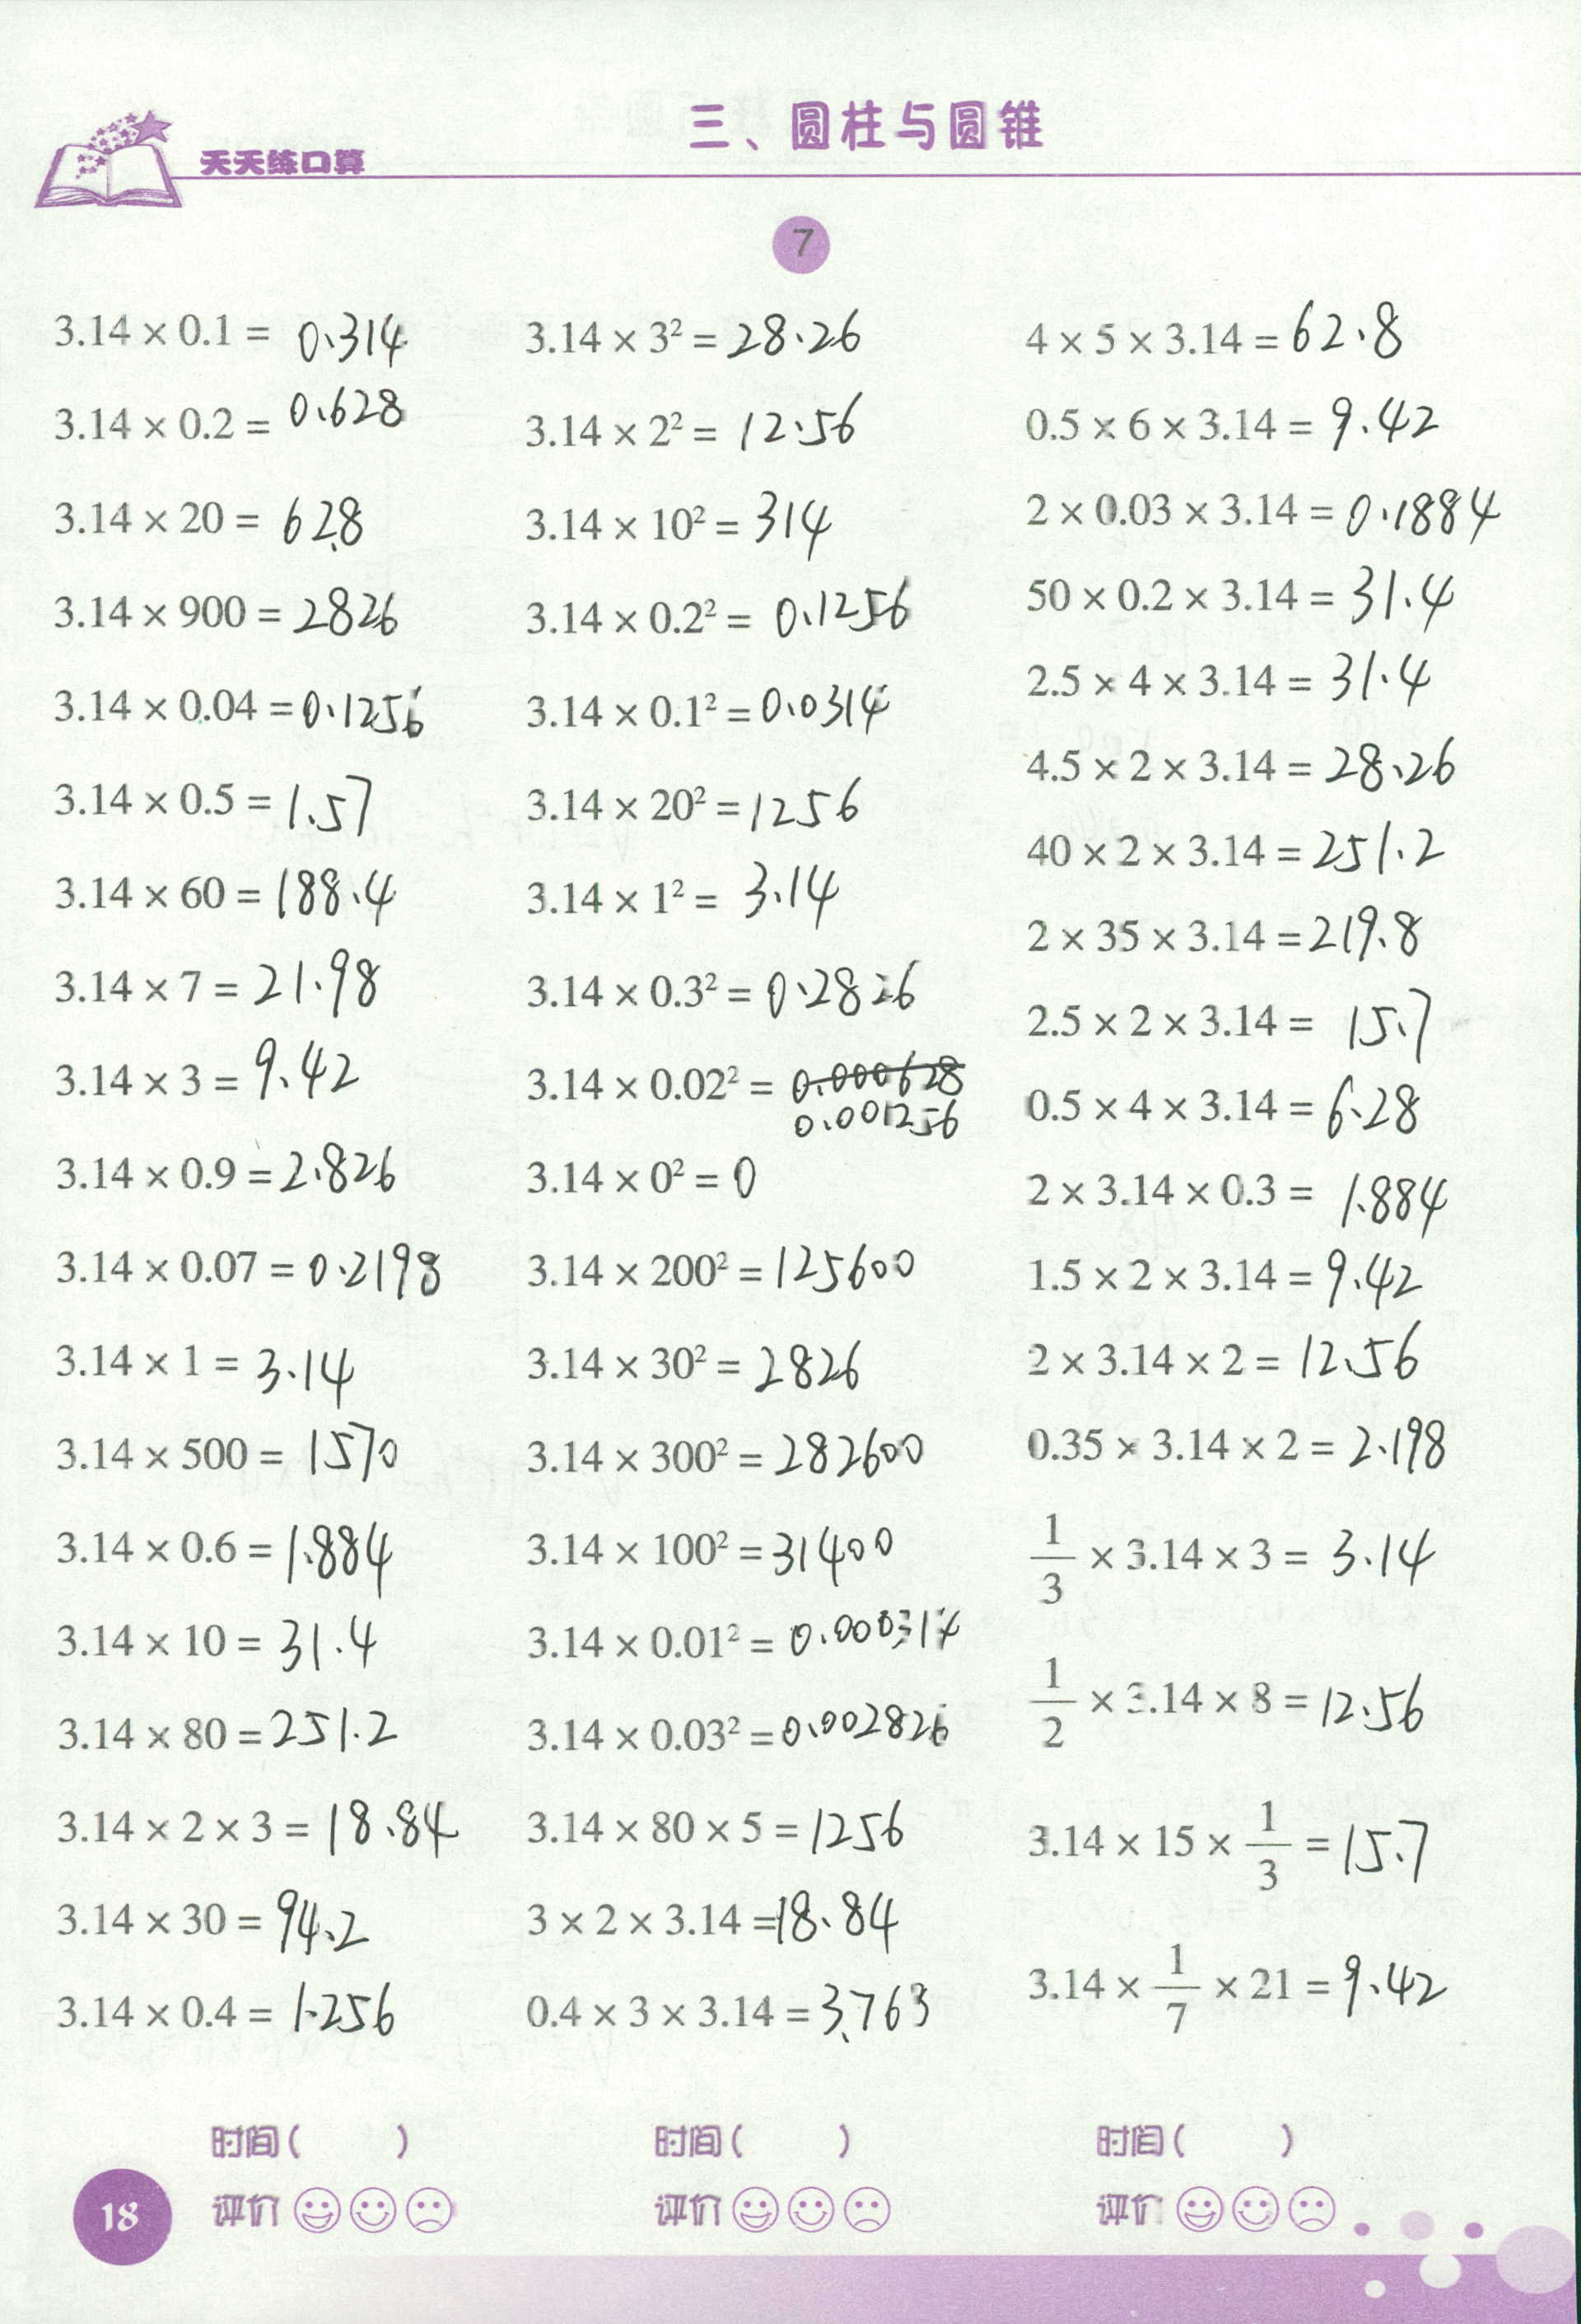 三、圆柱与圆锥
天天练口算
7
3.14 × 0.1 = 0.314
3.14 × 0.2 = 0.628
3.14 × 20 = 62.8
3.14 × 900 = 2826
3.14 × 0.04 = 0.1256
3.14 × 0.5 = 1.57
3.14 × 60 = 188.4
3.14 × 7 = 21.98
3.14 × 3 = 9.42
3.14 × 0.9 = 2.826
3.14 × 0.07 = 0.2198
3.14 × 1 = 3.14
3.14 × 500 = 1570
3.14 × 0.6 = 1.884
3.14 × 10 = 31.4
3.14 × 80 = 251.2
3.14 × 2 × 3 = 18.84
3.14 × 30 = 94.2
3.14 × 0.4 = 1.256
3.14 × 3² = 28.26
3.14 × 2² = 12.56
3.14 × 10² = 314
3.14 × 0.2² = 0.1256
3.14 × 0.1² = 0.0314
3.14 × 20² = 1256
3.14 × 1² = 3.14
3.14 × 0.3² = 0.2826
3.14 × 0.02² = 0.000628
0.001256
3.14 × 0² = 0
3.14 × 200² = 125600
3.14 × 30² = 2826
3.14 × 300² = 282600
3.14 × 100² = 31400
3.14 × 0.01² = 0.000314
3.14 × 0.03² = 0.002826
3.14 × 80 × 5 = 1256
3 × 2 × 3.14 = 18.84
0.4 × 3 × 3.14 = 3.763
4 × 5 × 3.14 = 62.8
0.5 × 6 × 3.14 = 9.42
2 × 0.03 × 3.14 = 0.1884
50 × 0.2 × 3.14 = 31.4
2.5 × 4 × 3.14 = 31.4
4.5 × 2 × 3.14 = 28.26
40 × 2 × 3.14 = 251.2
2 × 35 × 3.14 = 219.8
2.5 × 2 × 3.14 = 15.7
0.5 × 4 × 3.14 = 6.28
2 × 3.14 × 0.3 = 1.884
1.5 × 2 × 3.14 = 9.42
2 × 3.14 × 2 = 12.56
0.35 × 3.14 × 2 = 2.198
1/3 × 3.14 × 3 = 3.14
1/2 × 3.14 × 8 = 12.56
3.14 × 15 × 1/3 = 15.7
3.14 × 1/7 × 21 = 9.42
时间( )
时间( )
时间( )
评价
评价
评价
18